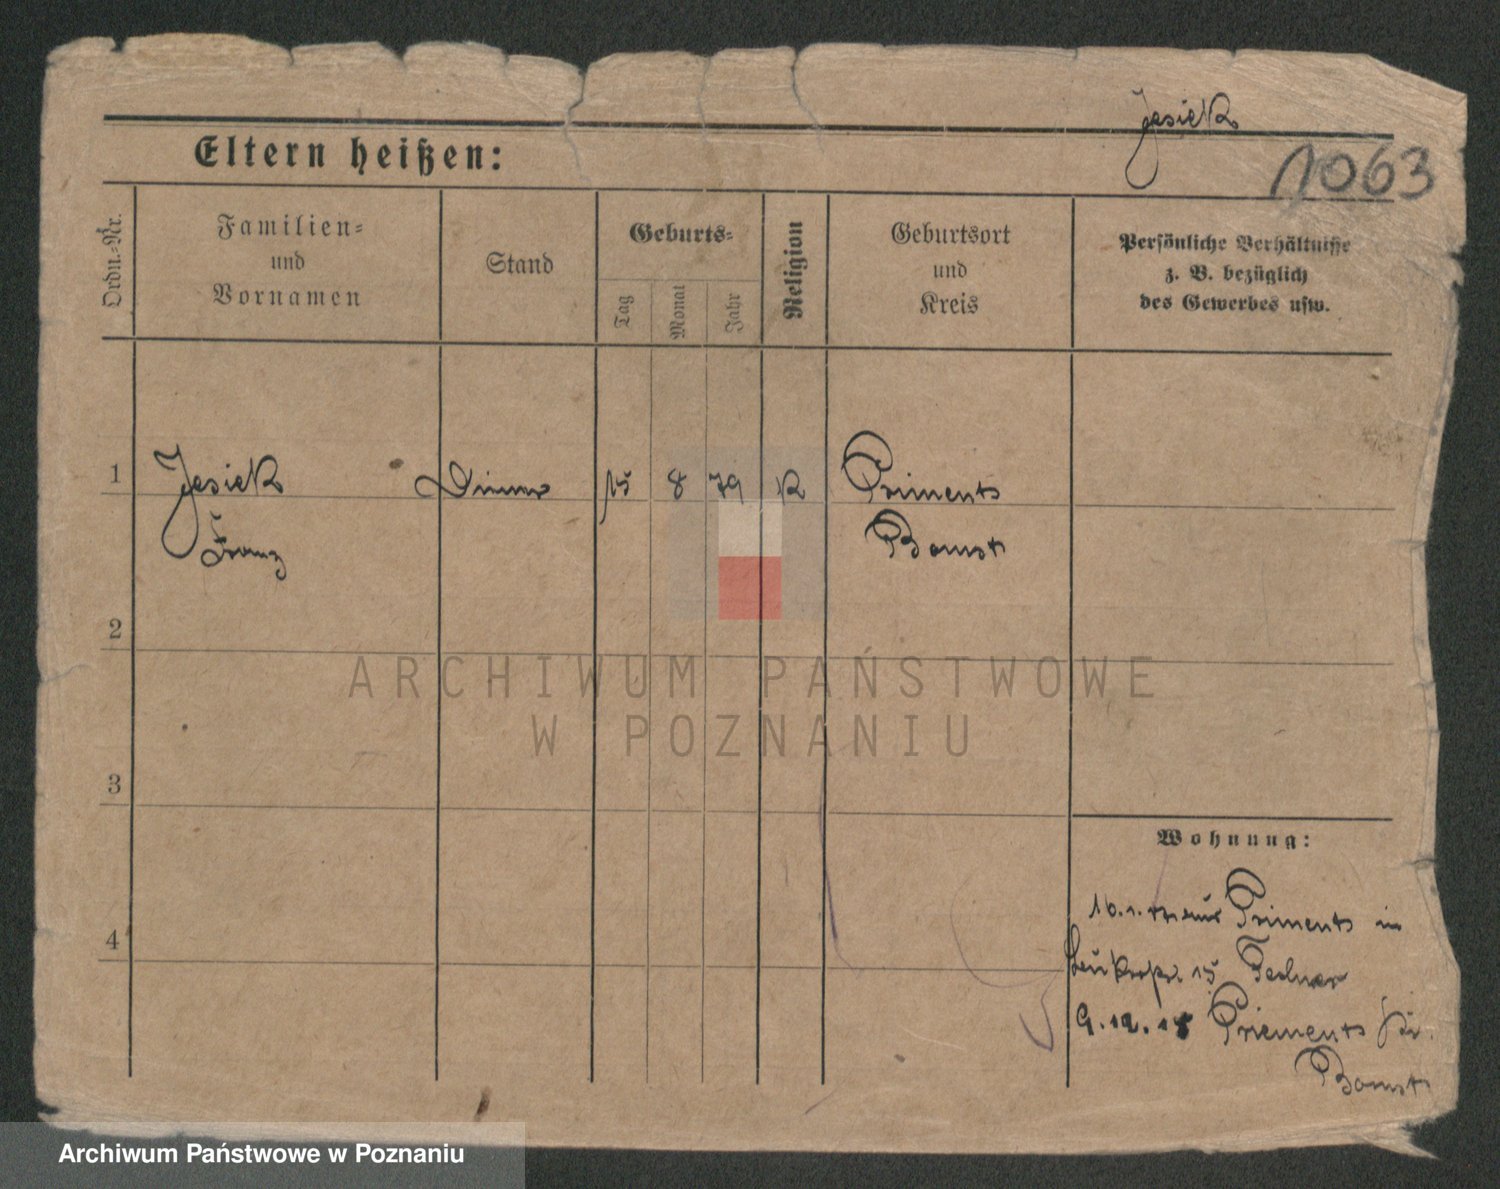 Jesiek
1063
Eltern heißen:
Ordn.-Nr.
Familien-
und
Vornamen
Stand
Geburts-
Tag
Monat
Jahr
Religion
Geburtsort
und
Kreis
Persönliche Verhältnisse
z. B. bezüglich
des Gewerbes usw.
1
Jesiek
Franz
15
8
79
K
Priments
Bomst
2
3
4
ARCHIWUM PAŃSTWOWE
W POZNANIU
Wohnung:
Priments in
15
9.12.18 Priements
Bomst
Archiwum Państwowe w Poznaniu